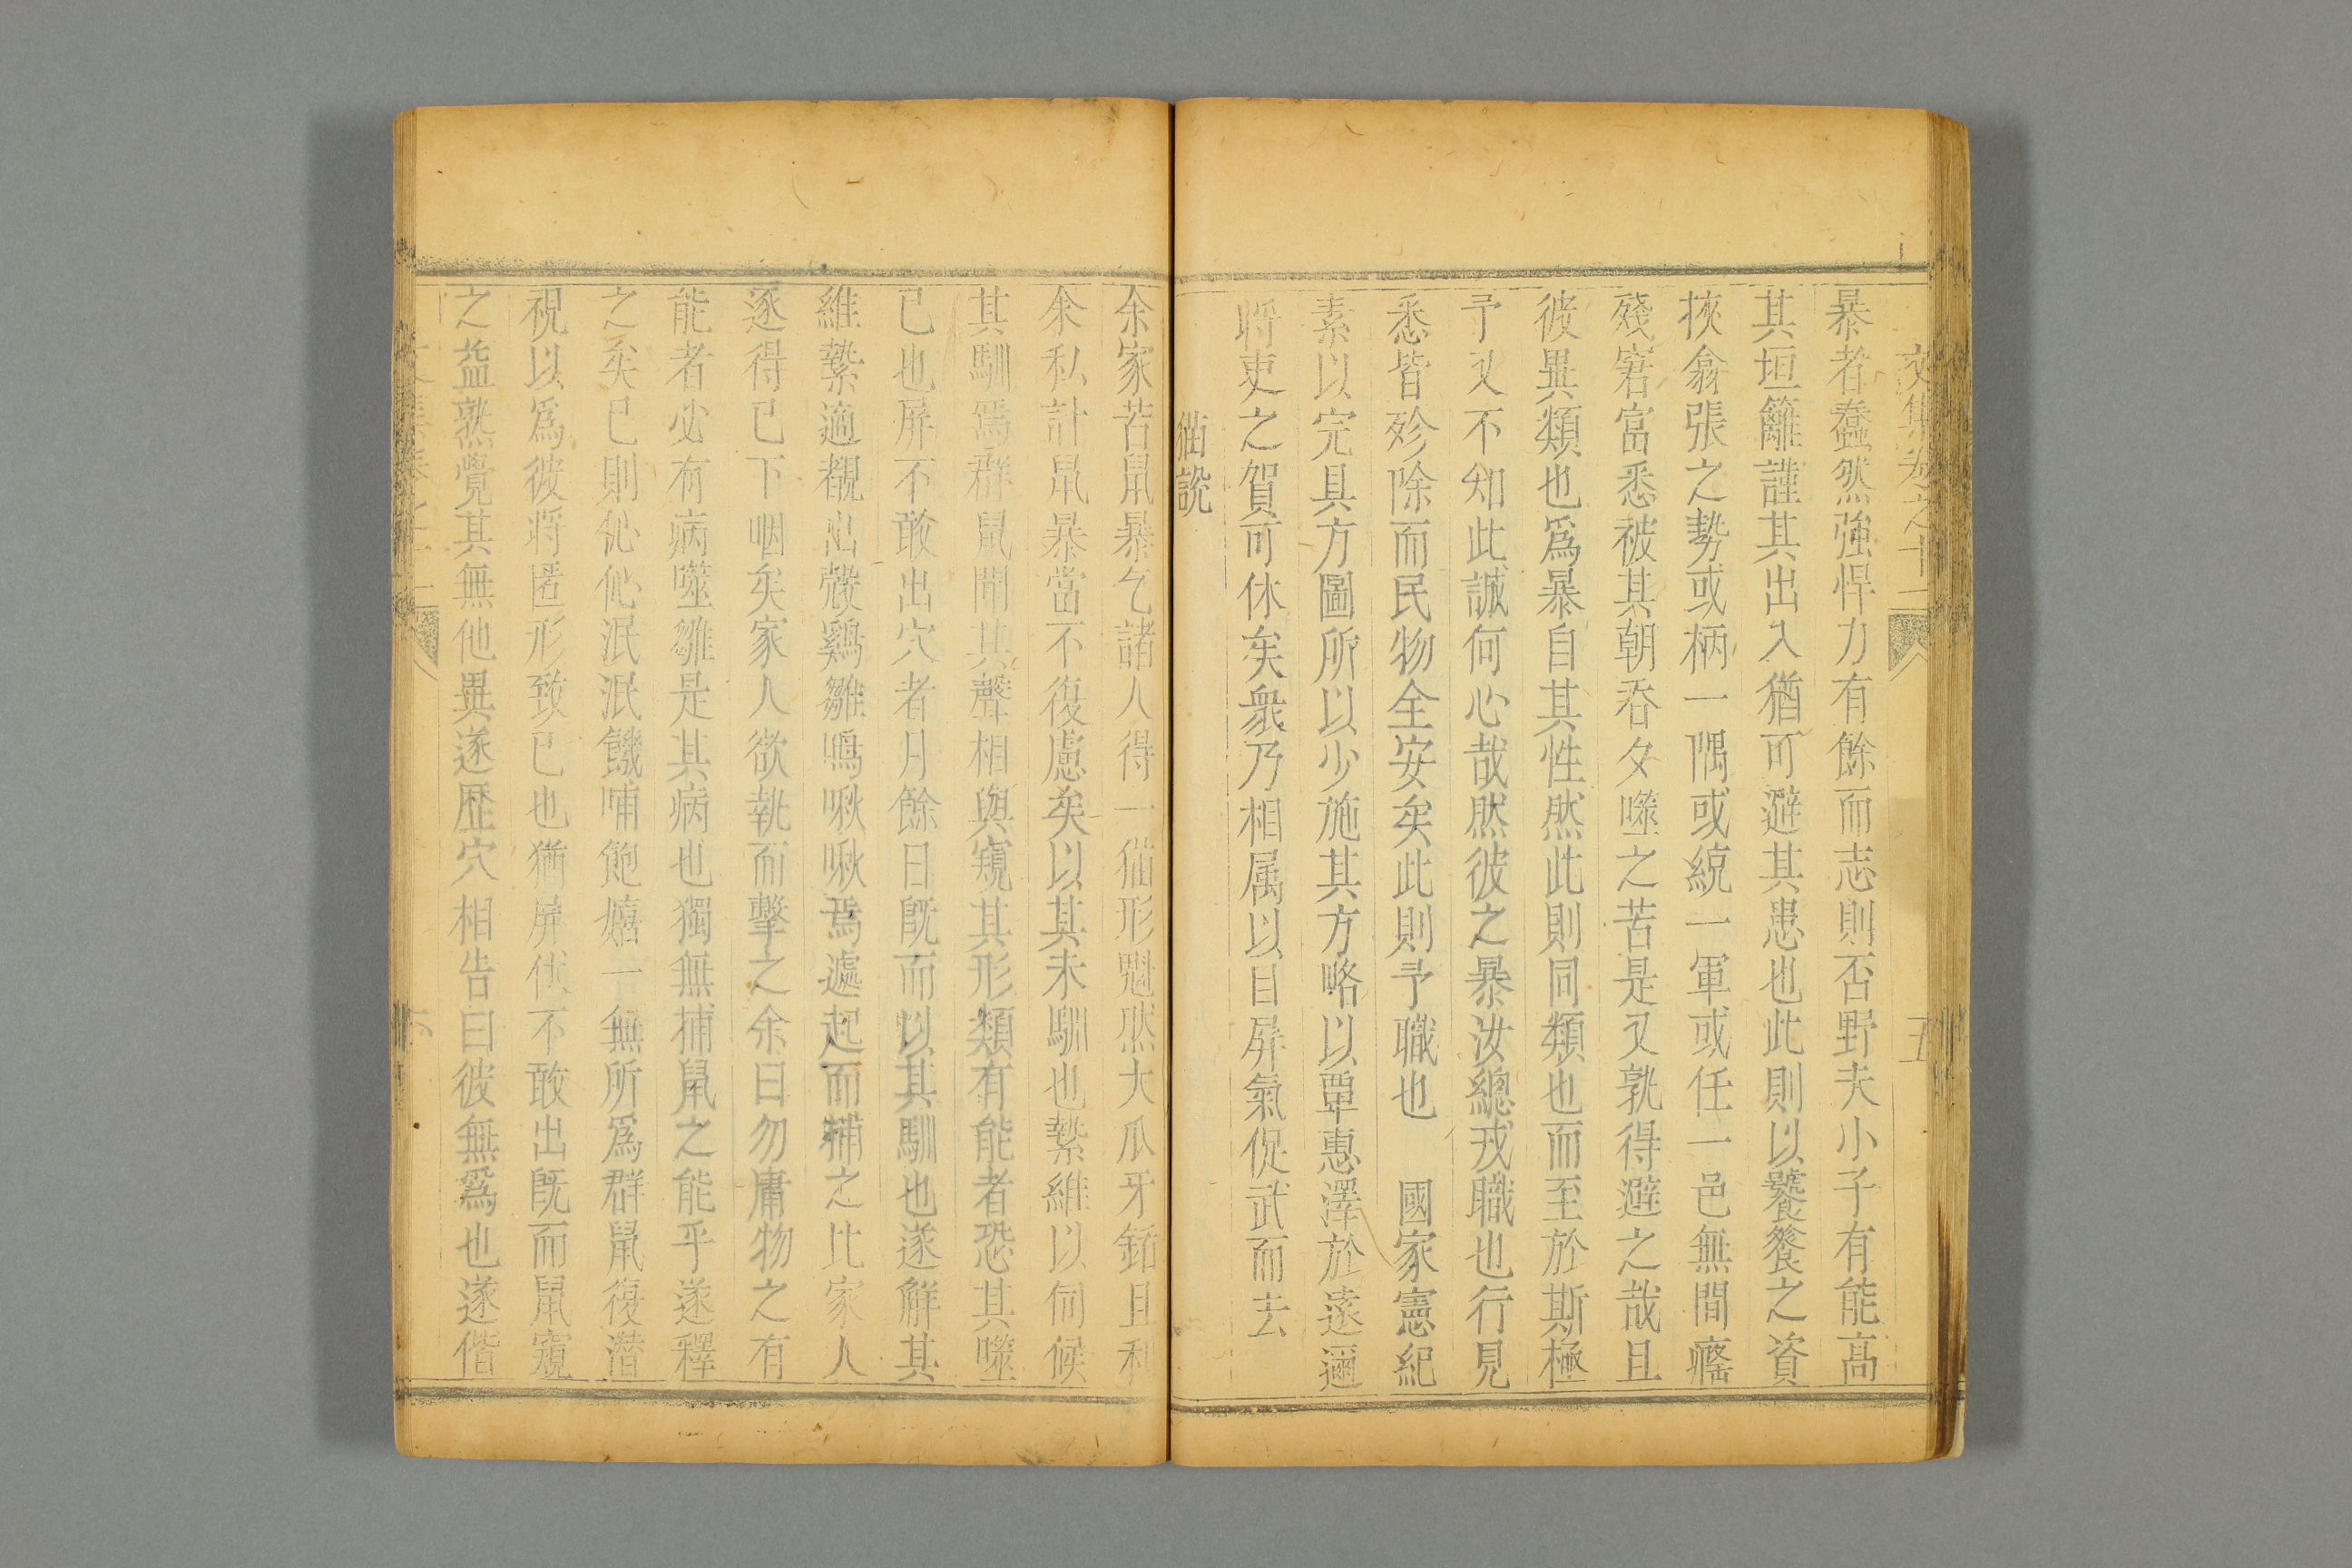 文集卷之十一
五
暴者蠢然強悍力有餘而志則否野夫小子有能高
其垣籬謹其出入猶可避其患也此則以饕餮之資
挾翕張之勢或柄一隅或綂一軍或任一邑無間癃
殘窘富悉被其朝吞夕噬之苦是又孰得避之哉且
彼異類也爲暴自其性然此則同類也而至於斯極
予又不知此誠何心哉然彼之暴汝總戎職也行見
悉皆殄除而民物全安矣此則予職也　國家憲紀
素以完具方圖所以少施其方略以覃惠澤於遠邇
將吏之賀可休矣衆乃相属以目屏氣促武而去
猫說
余家苦鼠暴乞諸人得一猫形魁然大爪牙銛且利
余私計鼠暴當不復慮矣以其未馴也縶維以伺候
其馴焉群鼠聞其聲相與窺其形類有能者恐其噬
已也屏不敢出穴者月餘日既而以其馴也遂解其
維縶適覩出殼鷄雛鳴啾啾焉遽起而捕之比家人
逐得已下咽矣家人欲執而擊之余曰勿庸物之有
能者必有病噬雛是其病也獨無捕鼠之能乎遂釋
之矣已則伈伈泯泯饑哺飽嬉一無所爲群鼠復潛
視以爲彼將匿形致已也猶屏伏不敢出既而鼠窺
之益熟覺其無他異遂歷穴相告曰彼無爲也遂偕